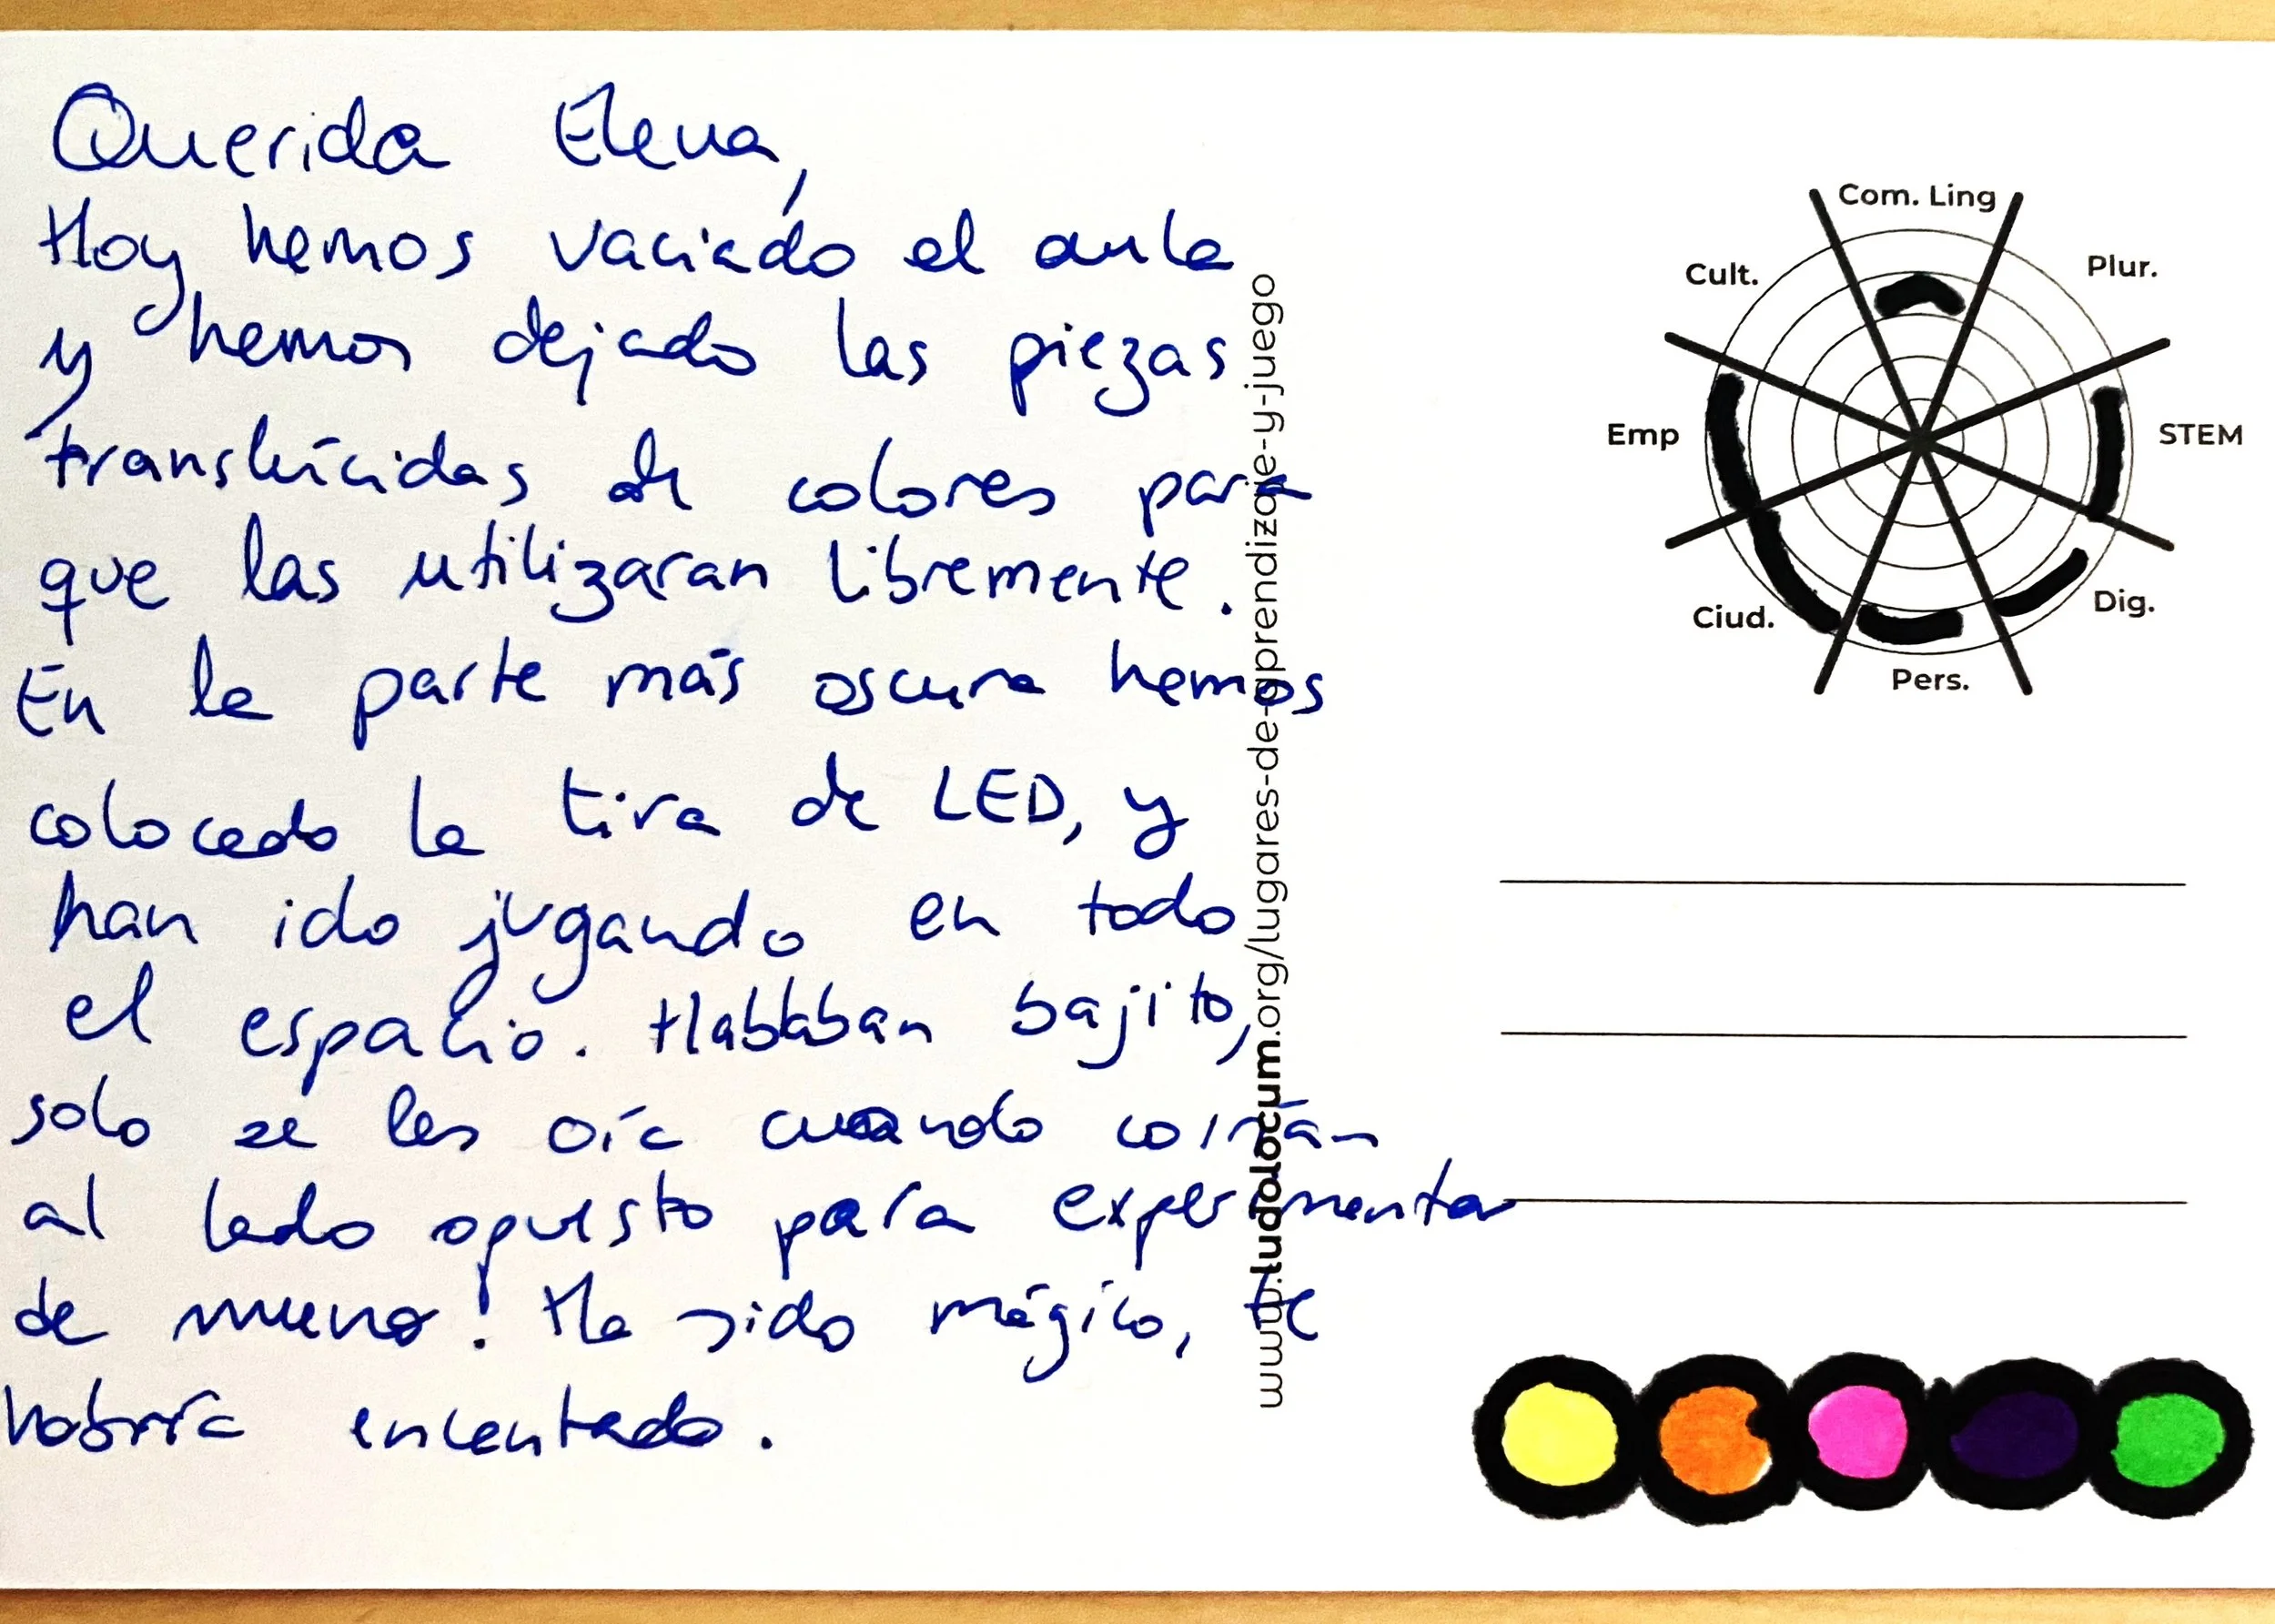 Querida Elena,
Hoy hemos vaciado el aula
y hemos dejado las piezas
translúcidas de colores para
que las utilizaran libremente.
En la parte más oscura hemos
colocado la tira de LED, y
han ido jugando en todo
el espacio. Hablaban bajito,
solo se les oía cuando corrían
al lado opuesto para experimentar
de nuevo! Ha sido mágico, te
habría encantado.
www.ludolocum.org/lugares-de-aprendizaje-y-juego
Com. Ling
Plur.
STEM
Dig.
Pers.
Ciud.
Emp
Cult.